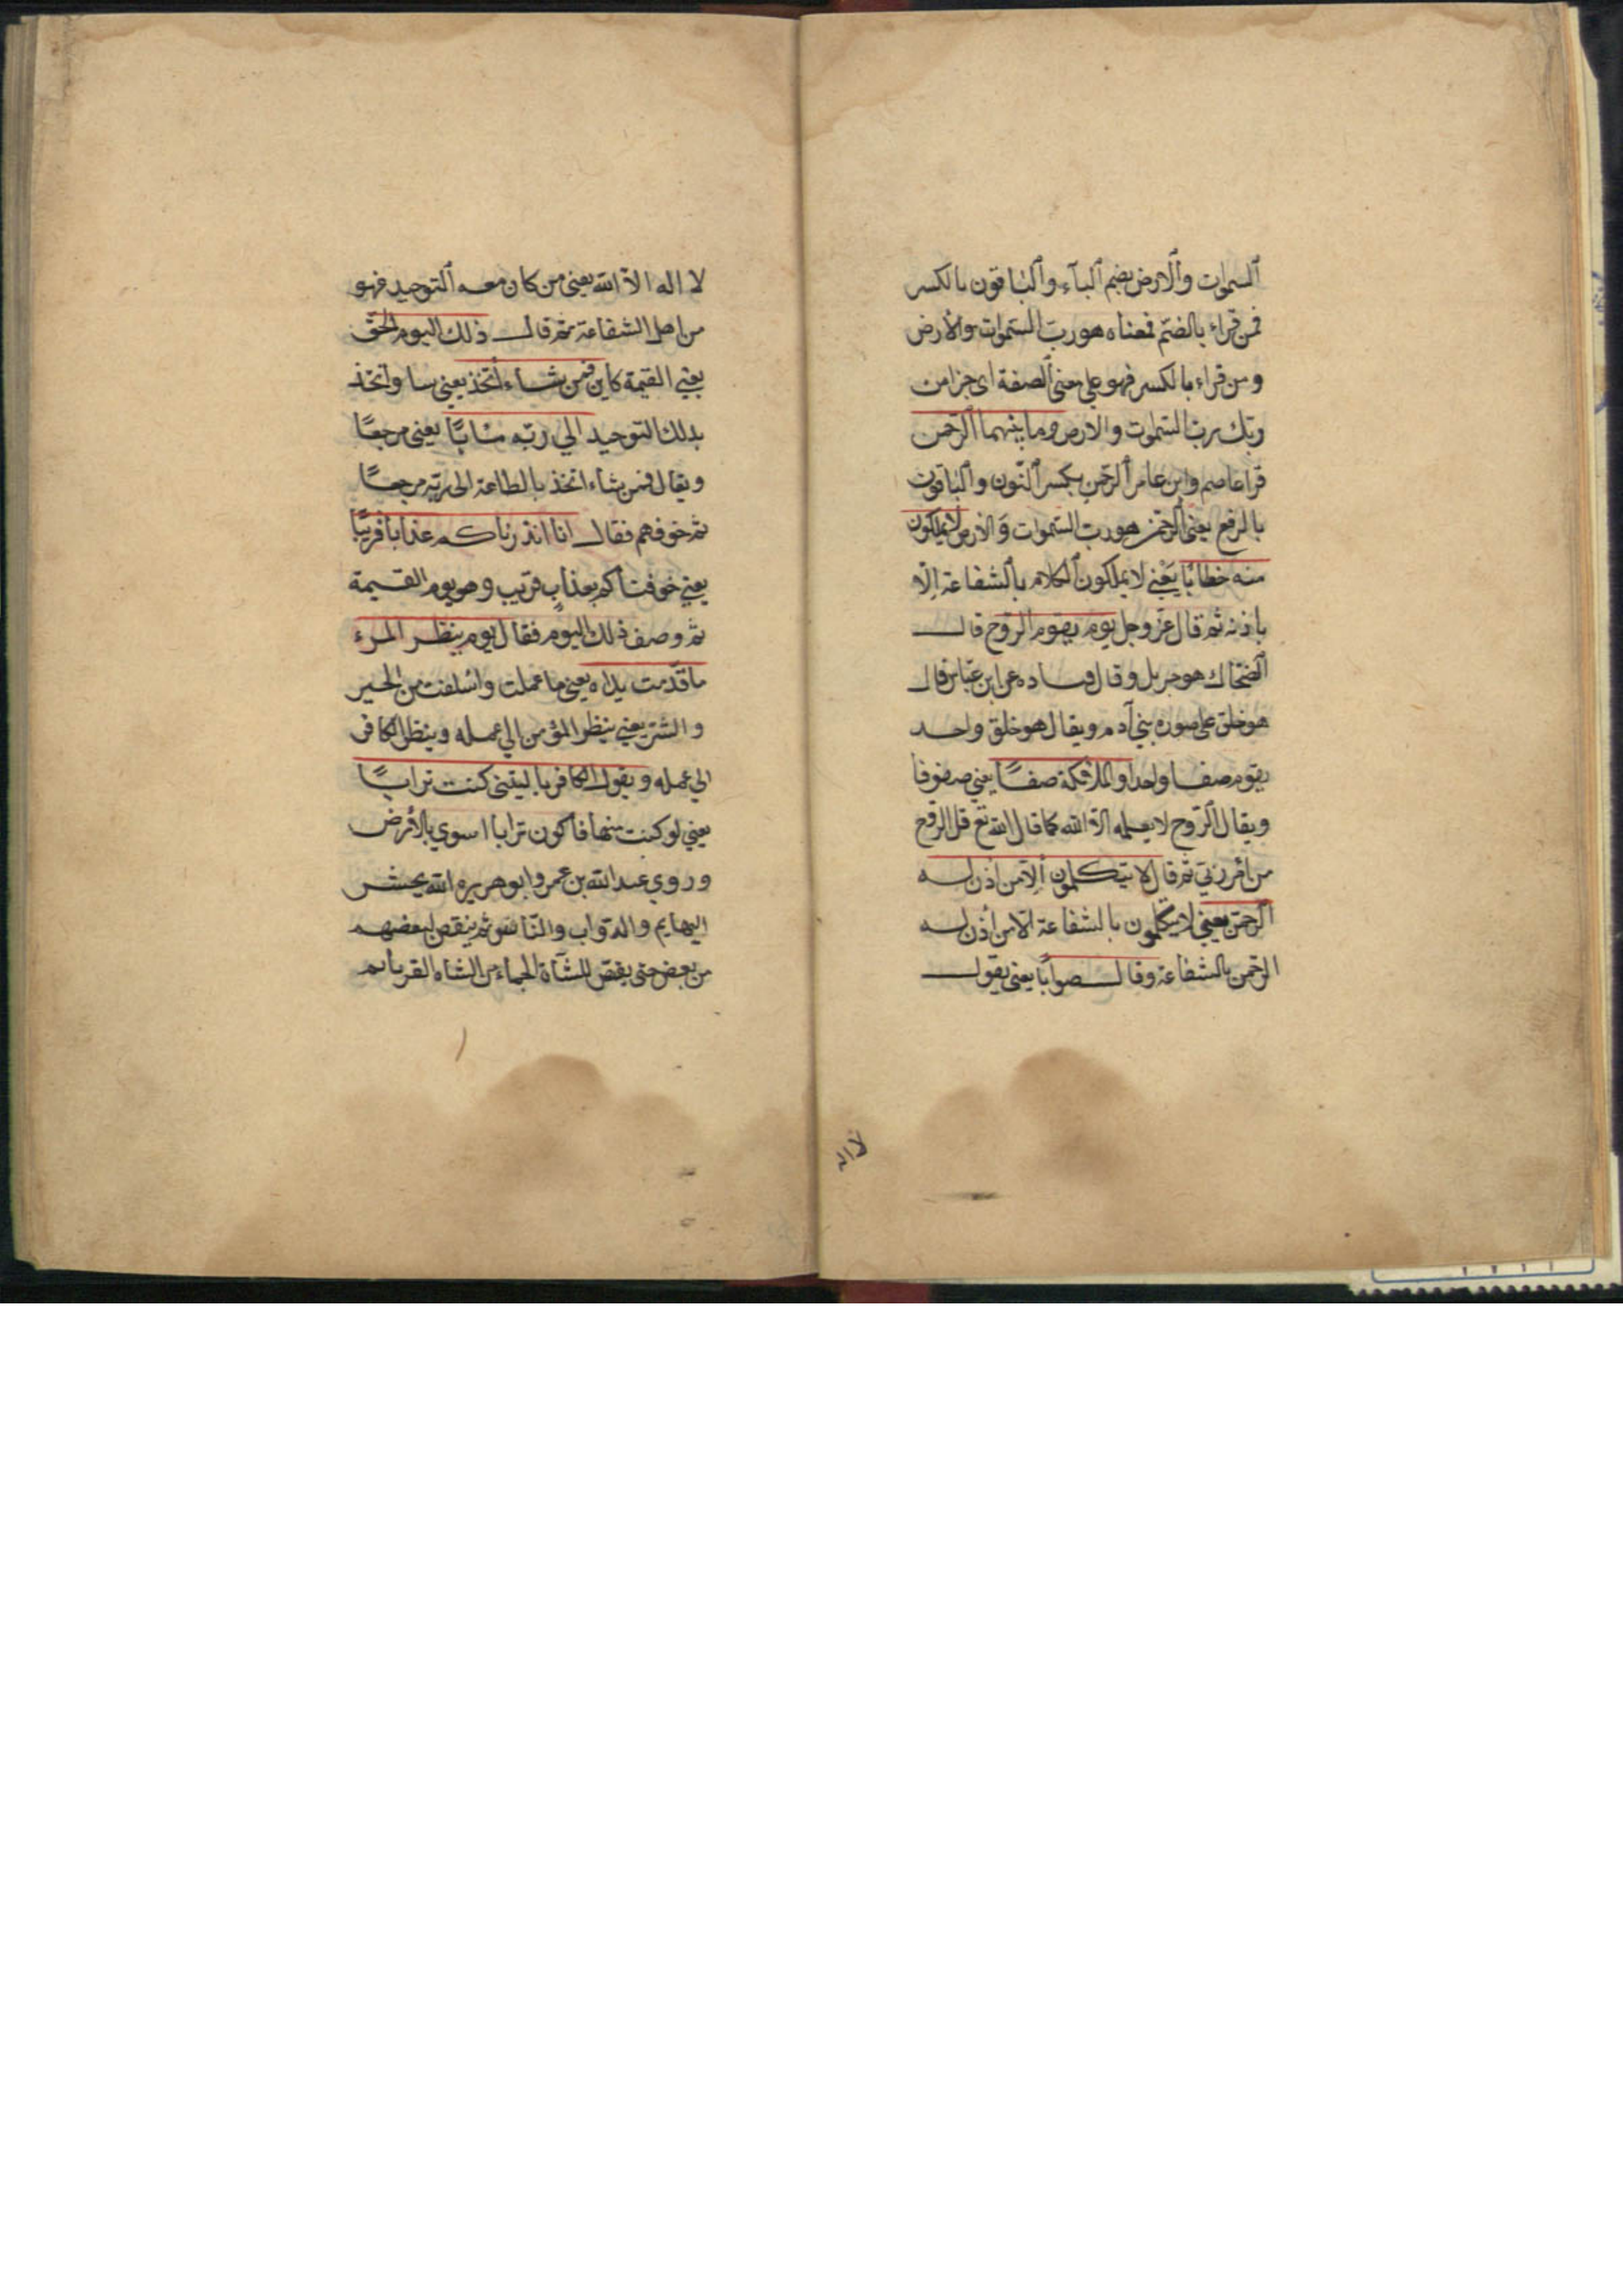 السموات والارض بضم البآء والباقون بالكسر
فمن قراء بالضم فمعناه هو رب السموات والارض
ومن قراء بالكسر فهو علي معني الصفة اي جزا من
ربك رب السموات والارض وما بينهما الرحمن
قرا عاصم وابن عامر الرحمن بكسر النون والباقون
بالرفع يعني الرحمن هو رب السموات والارض لا يملكون
منه خطابًا يعني لا يملكون الكلام بالشفاعة الا
باذنه ثم قال عز وجل يوم يقوم الروح قال
الضحاك هو جبريل وقال قتاده عن ابن عباس قال
هو خلق علي صوره بني آدم ويقال هو خلق واحد
يقوم صفا واحدا والملائكة صفًا يعني صفوفا
ويقال الروح لا يعلمه الا الله كما قال الله تع قل الروح
من امر ربي ثم قال لا يتكلمون الا من اذن له
الرحمن يعني لا يتكلمون بالشفاعة الا من أذن له
الرحمن بالشفاعة وقال صوابًا يعني يقول
لا اله الا الله يعني من كان معه التوحيد فهو
من اهل الشفاعة ثم قال ذلك اليوم الحق
يعني القيمة كاين فمن شاء أتخذ يعني واتخذ
بذلك التوحيد الي ربه مابًا يعني مرجعًا
ويقال فمن شاء اتخذ بالطاعة الى ربه مرجعًا
ثم خوفهم فقال انا انذرناكم عذابا قريبًا
يعني خوفناكم بعذاب قريب وهو يوم القيمة
ثم وصف ذلك اليوم فقال يوم ينظر المرء
ما قدمت يداه يعني ما عملت واسلفت من الخير
والشر يعني ينظر المؤمن الي عمله وينظر الكافر
الي عمله ويقول الكافر يا ليتني كنت ترابًا
يعني لو كنت منها فاكون ترابا اسوي بالأرض
وروي عبد الله بن عمر وابو هريره الله يحشر
البهايم والدواب والناس ثم يقص لبعضهم
من بعض حتى يقص للشآة الجماء من الشاه القرناء ثم